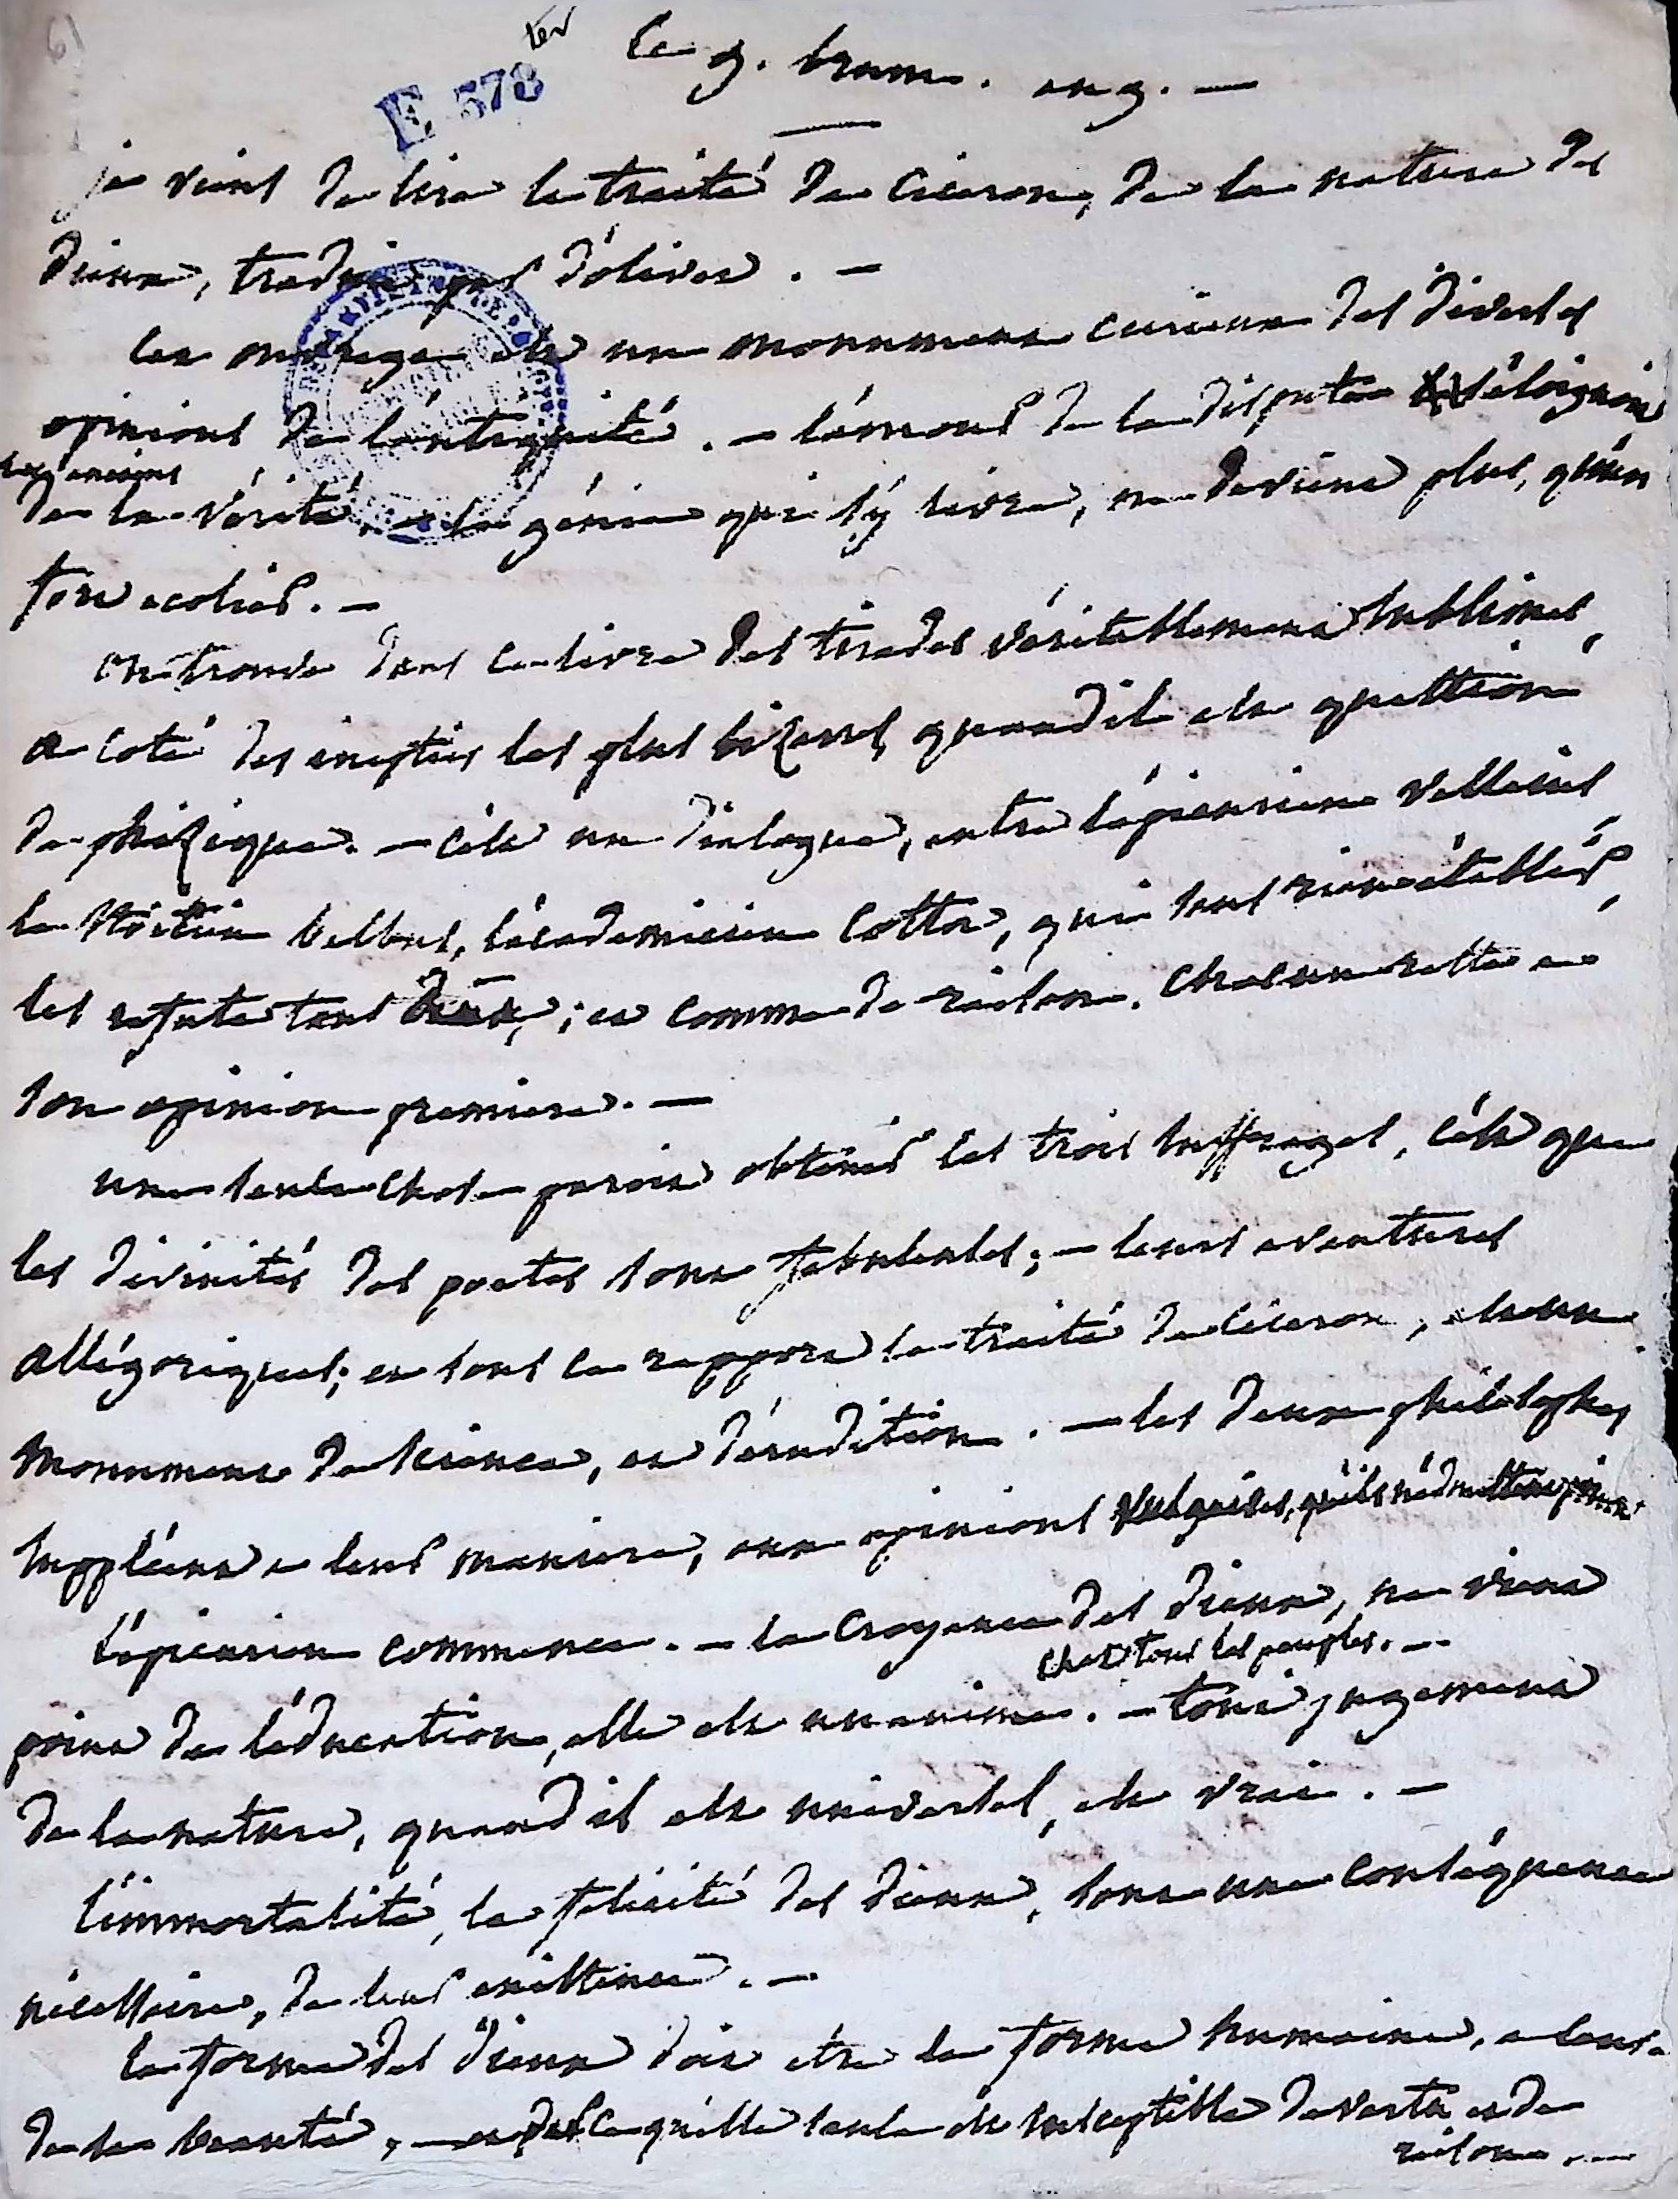 61
E 578 ter
Ce 9. brum. an 9. —
je viens de lire le traité de Ciceron, de la nature des
dieux, traduit par d'olivet. —
Cet ouvrage est un monument curieux des diverses
opinions de l'antiquité. — l'amour de la dispute éloignoit
les anciens
de la vérité, — le génie qui s'y livre, ne devient plus, qu'un
fort ecolier. —
on trouve dans ce livre des tirades véritablement sublimes,
a coté des inepties les plus bizarres, quand il est question
de phizique. — c'est un dialogue, entre l'épicurien Velleius,
le stoïcien Balbus, l'académicien Cotta, qui sans rien établir,
les refute tous deux; et comme de raison, chacun reste a
son opinion premiere. —
une seule chose paroit obtenir les trois suffrages, c'est que
les divinités des poetes sont fabuleuses; — leurs aventures
allégoriques; et sous ce rapport le traité de Ciceron, est un
monument de science, et d'érudition. — les deux philosophes
suppléent a leur maniere, aux opinions vulgaires, qu'ils n'admettent point.
L'épicurien commence. — la croyance des dieux, ne vient
chez tous les peuples. —
point de l'éducation, elle est unanime. — tout jugement
de la nature, quand il est universel, est vrai. —
L'immortalité, la félicité des dieux, sont une conséquence
nécessaire, de leur existence. —
la forme des dieux doit etre la forme humaine, a cause
de sa beauté, — et parce qu'elle seule est susceptible de vertu et de
raison. —